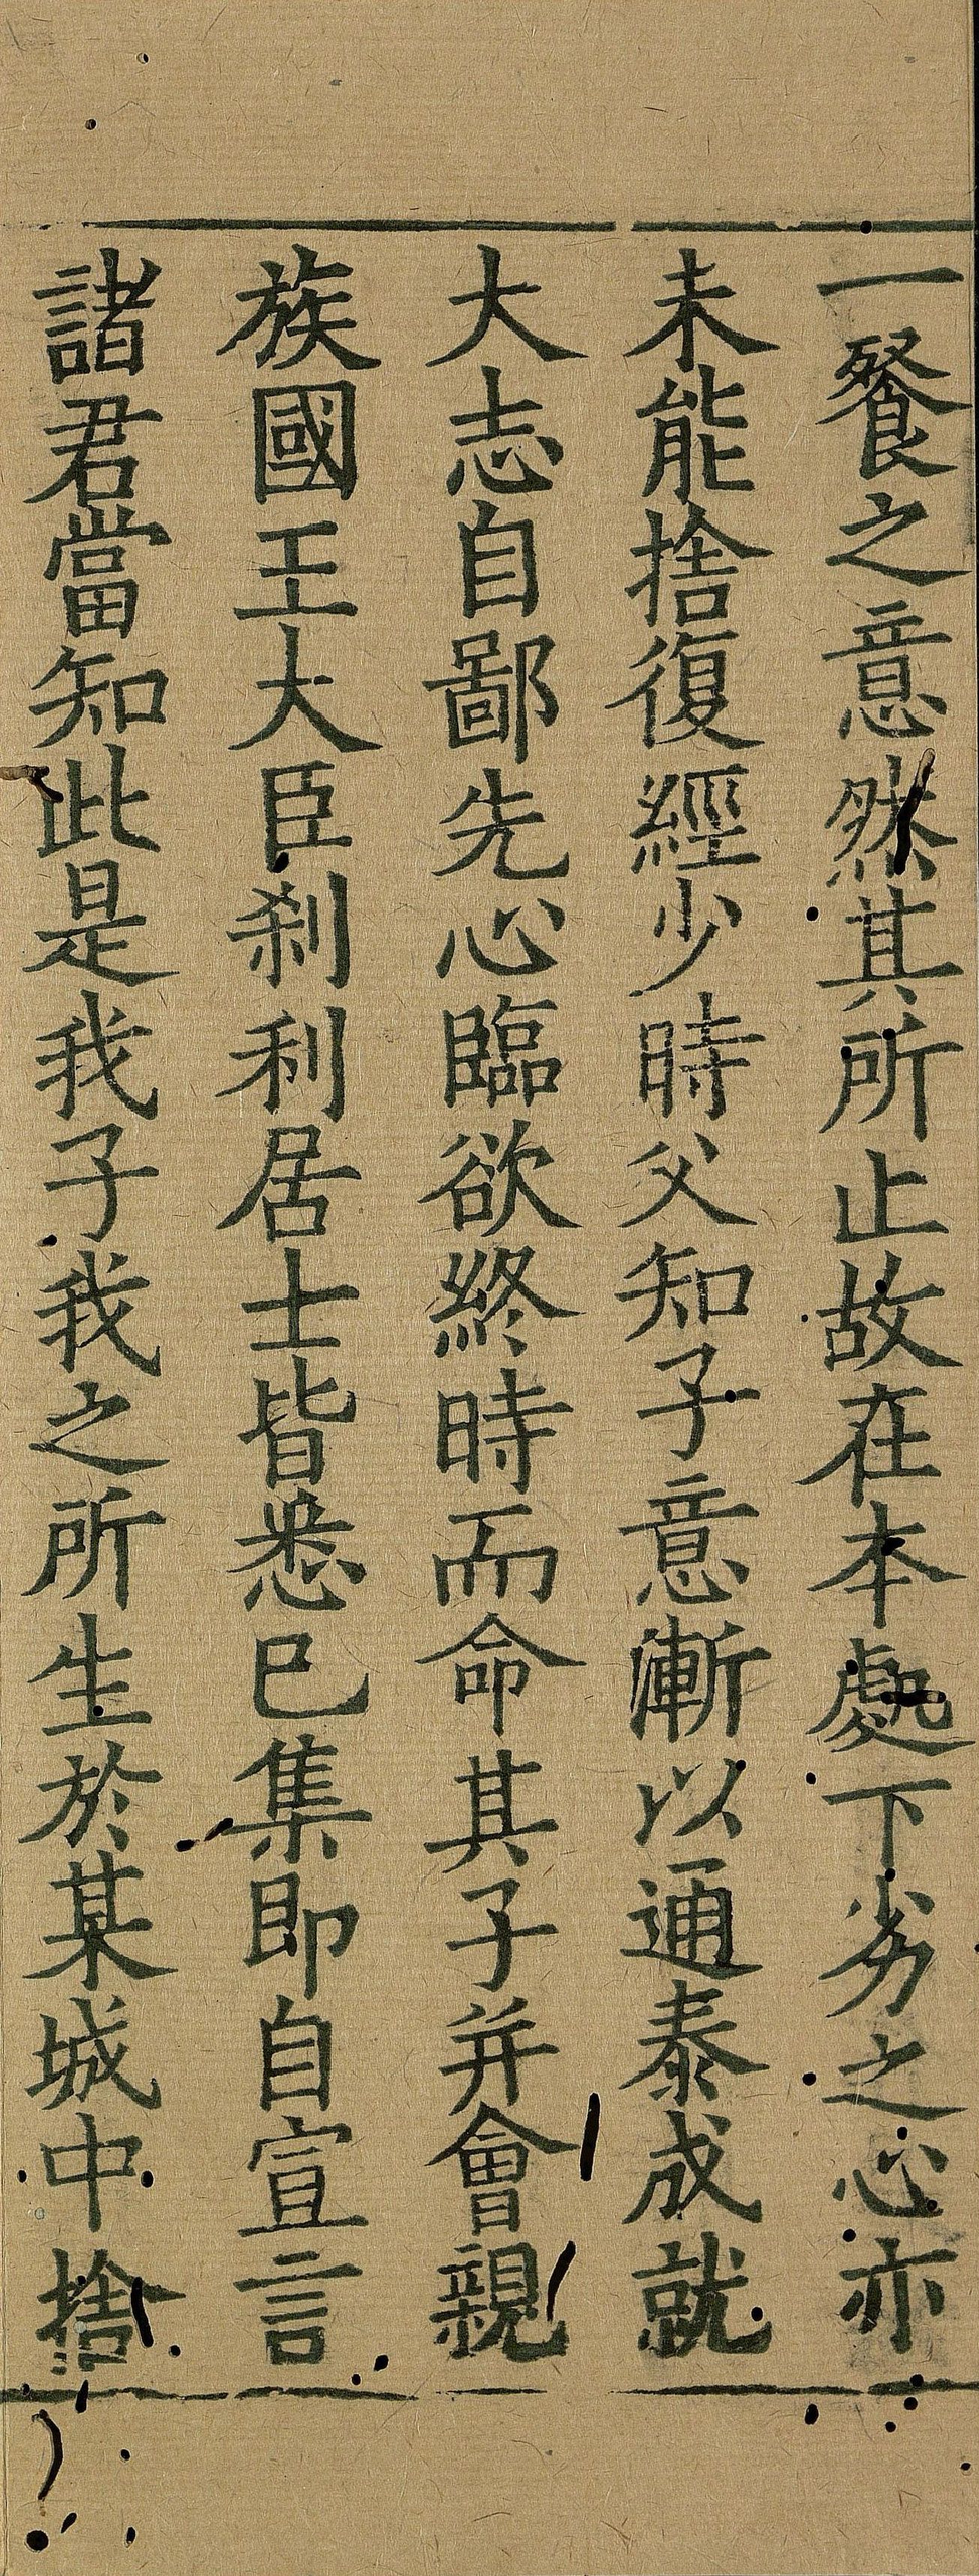 一餐之意然其所止故在本處下劣之心亦
未能捨復經少時父知子意漸以通泰成就
大志自鄙先心臨欲終時而命其子并會親
族國王大臣剎利居士皆悉已集即自宣言
諸君當知此是我子我之所生於某城中捨